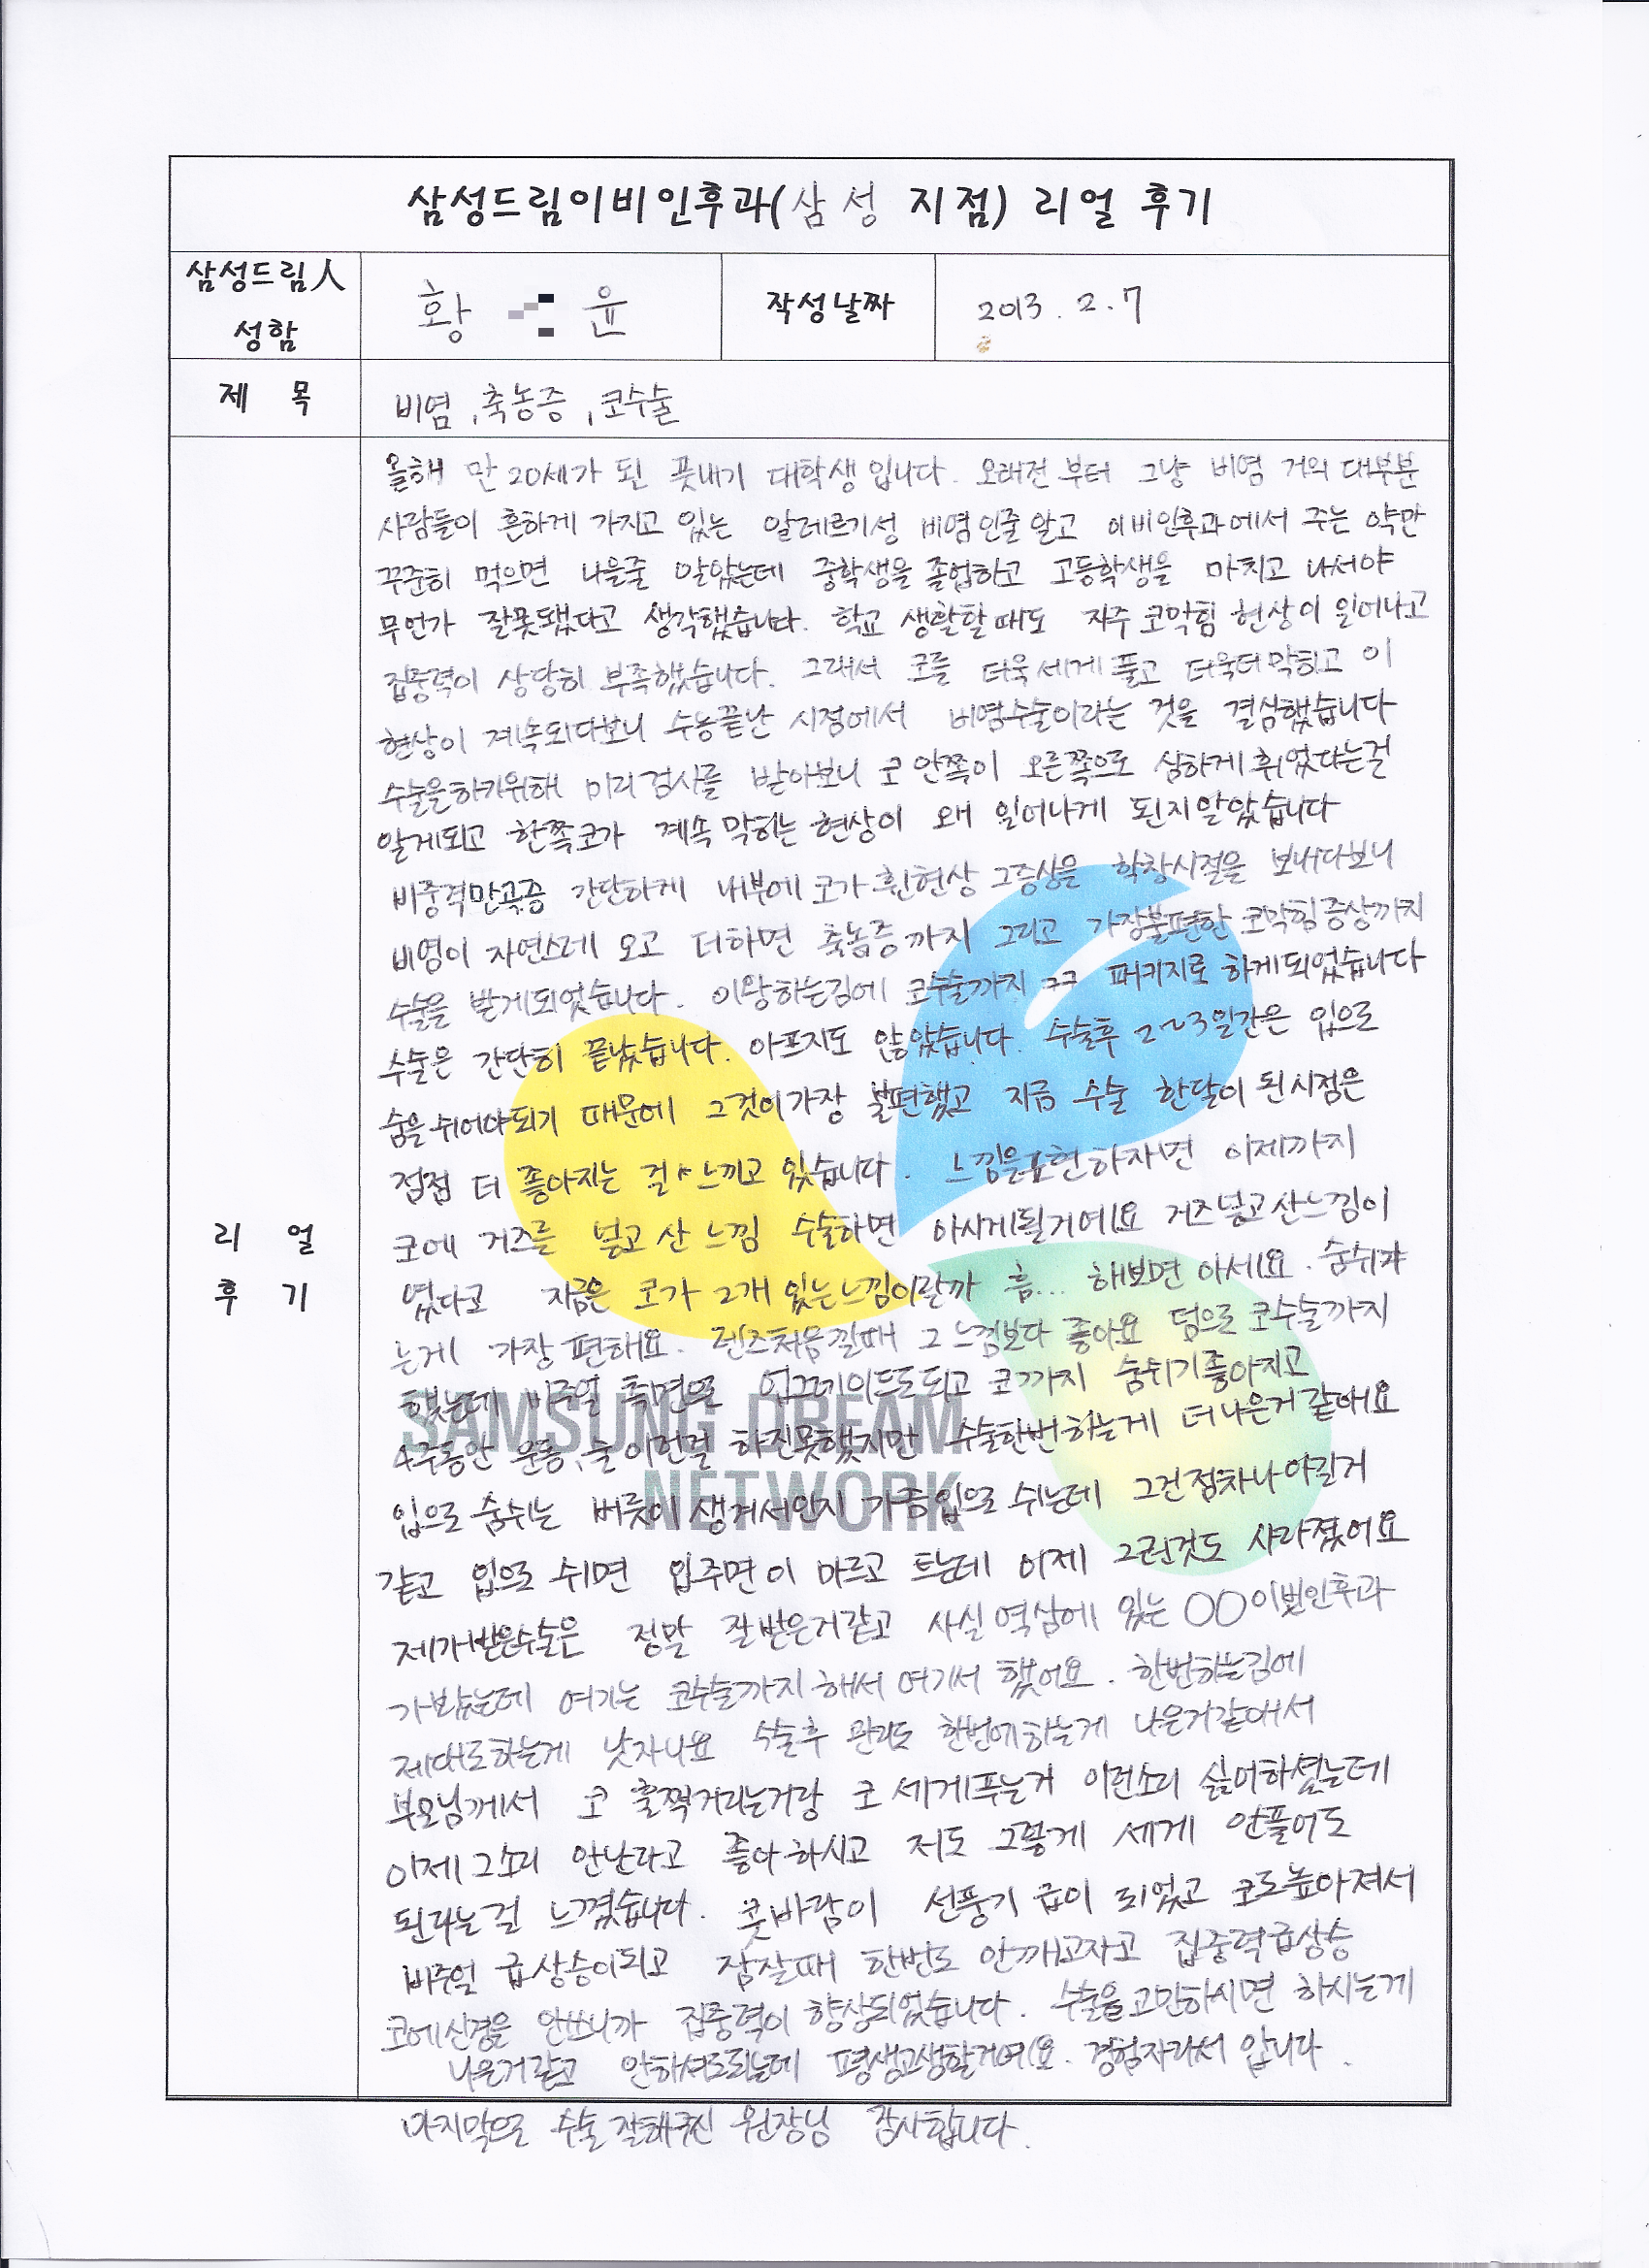 삼성드림이비인후과(삼성 지점) 리얼 후기
삼성드림人 성함
황 윤
작성날짜
2013. 2. 7
제 목
비염, 축농증, 코수술
리 얼 후 기
올해 만 20세가 된 풋내기 대학생입니다. 오래전 부터 그냥 비염 거의 대부분
사람들이 흔하게 가지고 있는 알레르기성 비염인줄 알고 이비인후과에서 주는 약만
꾸준히 먹으면 나을줄 알았는데 중학생을 졸업하고 고등학생을 마치고 나서야
무언가 잘못됐다고 생각했습니다. 학교 생활할때도 자주 코막힘 현상이 일어나고
집중력이 상당히 부족했습니다. 그래서 코를 더욱 세게 풀고 더욱더 막히고 이
현상이 계속되다보니 수능끝난 시점에서 비염수술이라는 것을 결심했습니다
수술을하기위해 미리 검사를 받아보니 코 안쪽이 오른쪽으로 심하게 휘었다는걸
알게되고 한쪽코가 계속 막히는 현상이 왜 일어나게 된지알았습니다
비중격만곡증 간단하게 내부에 코가 휜현상 그증상을 학창시절을 보내다보니
비염이 자연스레 오고 더하면 축농증까지 그리고 가장불편한 코막힘증상까지
수술을 받게되었습니다. 이왕하는김에 코수술까지 ㅋㅋ 패키지로 하게되었습니다
수술은 간단히 끝났습니다. 아프지도 않았습니다. 수술후 2~3일간은 입으로
숨을쉬어야되기 때문에 그것이가장 불편했고 지금 수술 한달이 된시점은
점점 더 좋아지는 걸 느끼고 있습니다. 느낌을표현하자면 이제까지
코에 거즈를 넣고 산 느낌 수술하면 아시게될거에요 거즈넣고산느낌이
였다고 지금은 코가 2개 있는느낌이랄까 흠... 해보면 아세요. 숨쉬
는게 가장 편해요. 렌즈처음낄때 그 느낌보다 좋아요 덤으로 코수술까지
했는데 비주얼 측면으로 업그레이드도되고 코까지 숨쉬기좋아지고
4주동안 운동,술 이런걸 하진못했지만 수술한번하는게 더나은거같애요
입으로 숨쉬는 버릇이 생겨서인지 가끔입으로 쉬는데 그건점차나아질거
같고 입으로 쉬면 입주변이 마르고 트는데 이제 그런것도 사라졌어요
제가받은수술은 정말 잘받은거같고 사실 역삼에 있는 ○○이빈인후과
가봤는데 여기는 코수술까지해서 여기서 했어요. 한번하는김에
제대로하는게 낫자나요 수술후 관리도 한번에하는게 나은거같애서
부모님께서 코 훌쩍거리는거랑 코 세게푸는거 이런소리 싫어하셨는데
이제그소리 안난다고 좋아하시고 저도 그렇게 세게 안풀어도
된다는걸 느꼈습니다. 콧바람이 선풍기 급이 되었고 코도높아져서
비주얼 급상승이되고 잠잘때 한번도 안깨고자고 집중력급상승
코에신경을 안쓰니까 집중력이 향상되었습니다. 수술을고민하시면 하시는게
나은거같고 안하셔도되는데 평생고생할거에요. 경험자라서 압니다.
마지막으로 수술 잘해주신 원장님 감사합니다.
SAMSUNG DREAM
NETWORK